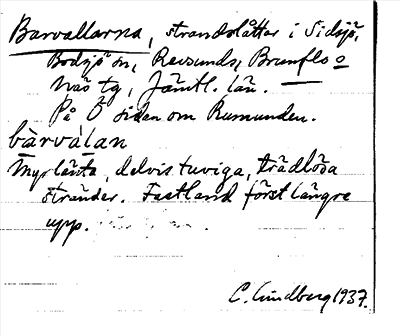 Barvallarna, strandslåtter i Sidsjö,
Bodsjö sn, Revsunds, Brunflo o
Näs tg, Jämtl. län.
På Ö sidan om Rumunden.
bàrvàlan
Myrlänta, delvis tuviga, trädlösa
stränder. Fastland först längre
upp.
C. Lindberg 1937.